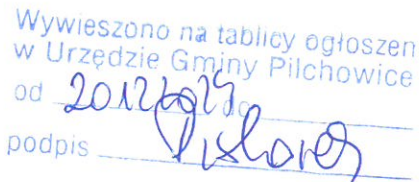 Wywieszono na tablicy ogłoszeń
w Urzędzie Gminy Pilchowice
od do
podpis